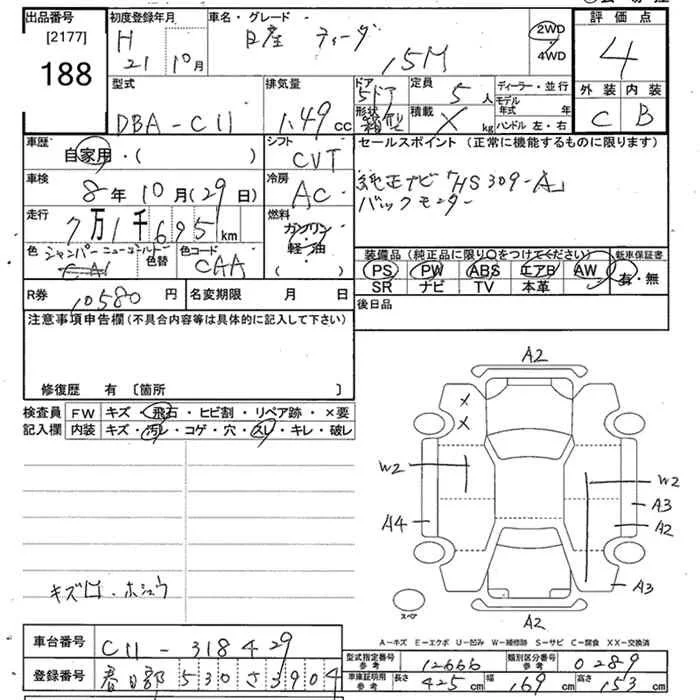 出品番号 初度登録年月 車名・グレード 評価点
[2177] H 21 10月 日産 ティーダ 15M 2WD 4WD 4
188
型式 排気量 ドア 5ドア 定員 5人 ディーラー・並行 外装 内装
DBA-C11 1.49cc 形状 箱型 積載 X kg モデル年式 年 ハンドル 左・右 C B
車歴 自家用・( ) シフト CVT セールスポイント(正常に機能するものに限ります)
車検 8年10月(29日) 冷房 AC 純正ナビ「HS309-A」
バックモニター
走行 7万1千695km 燃料 ガソリン 軽油 ( )
色 シャンパーニューゴールド 色替 色コード CAA 装備品(純正品に限り○をつけてください) 新車保証書
PS PW ABS エアB AW 有・無
SR ナビ TV 本革
R券 10580円 名変期限 月 日 後日品
注意事項申告欄(不具合内容等は具体的に記入して下さい)
修復歴 有 〔箇所 〕
検査員 FW キズ・飛石・ヒビ割・リペア跡・×要
記入欄 内装 キズ・汚レ・コゲ・穴・スレ・キレ・破レ
A2
X
X
W2 W2
A3
A4 A2
A3
スペア
A2
キズ凹・ホシュウ
A−キズ E−エクボ U−凹み W−補修跡 S−サビ C−腐食 XX−交換済
車台番号 C11-318429 型式指定番号 参考 12666 類別区分番号 参考 0289
登録番号 春日部 530 さ 3904 車庫証明用 参考 長さ 425cm 幅 169cm 高さ 153cm